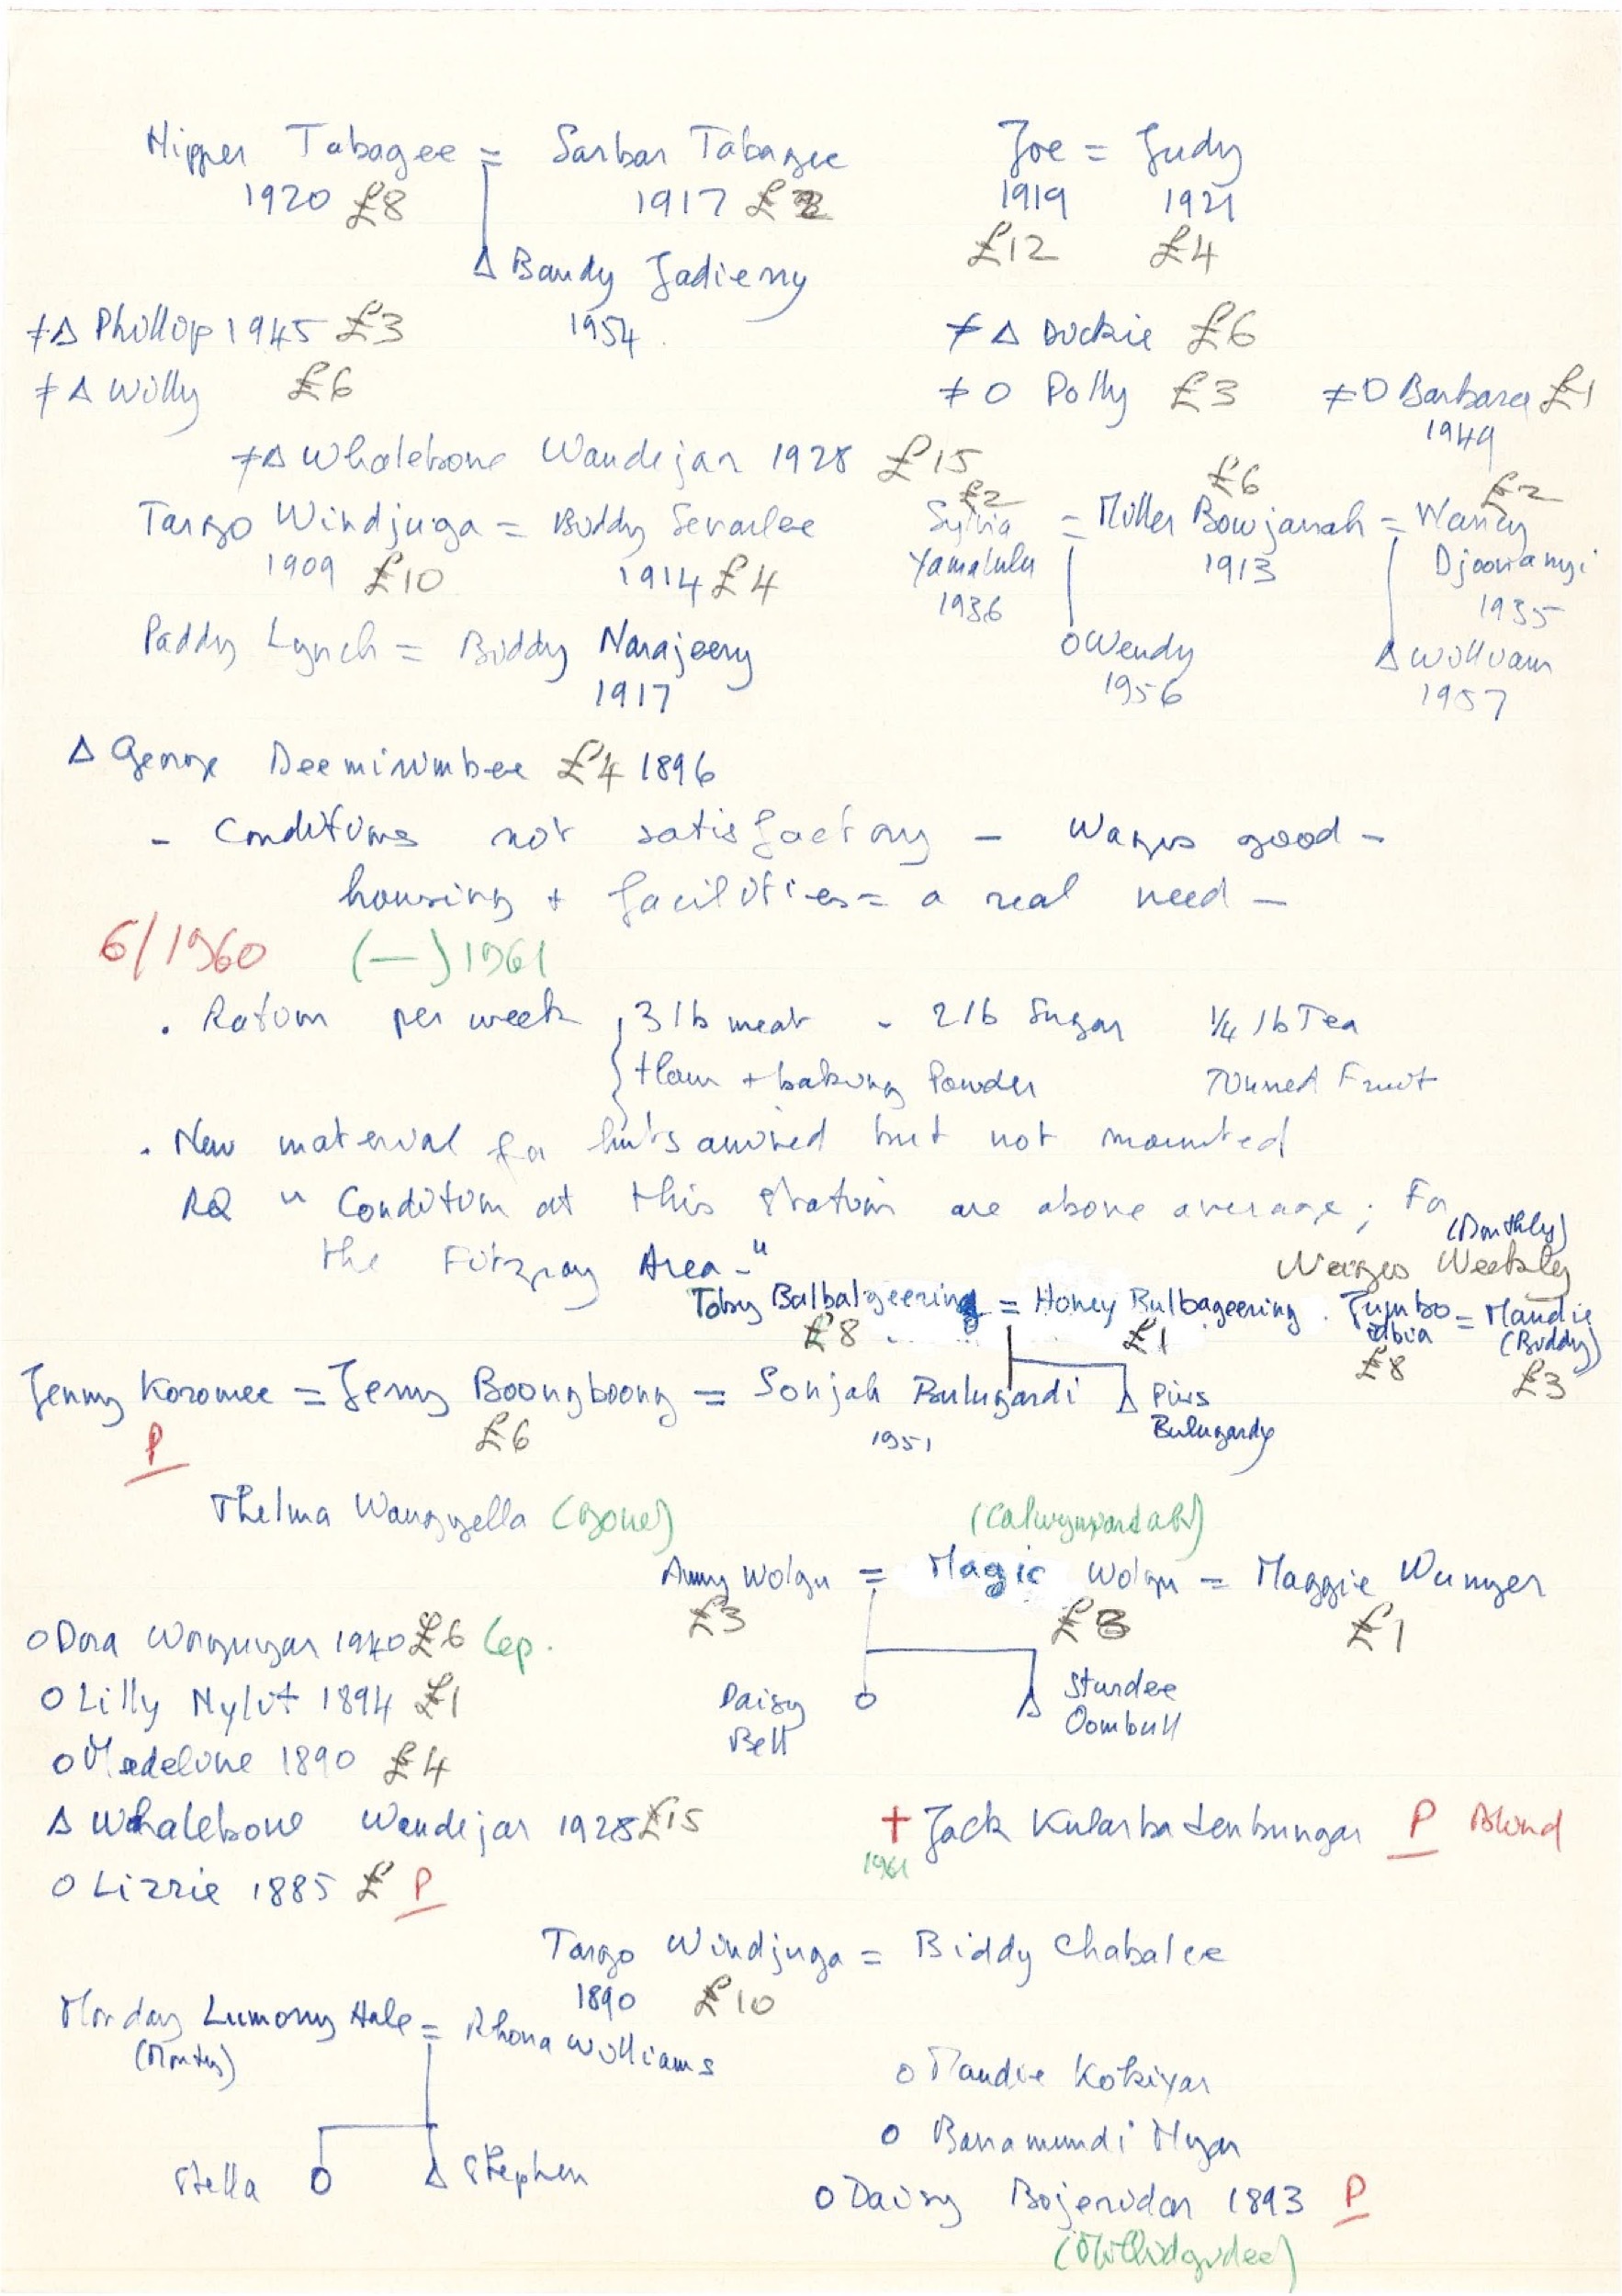 Nipper Tabagee = Sarbar Tabagee Joe = Judy
1920 £8 1917 £2 1919 1921
£12 £4
Δ Bandy Jadierry
≠Δ Phillip 1945 £3 1954 ≠ Δ Duckie £6
≠ Δ Willy £6 ≠ O Polly £3 ≠ O Barbara £1
1949
≠Δ Whalebone Wandejar 1928 £15
£2 £6 £2
Targo Windjuga = Biddy Sevarlee Sylvia = Miller Bowjanah = Nancy
1909 £10 1914 £4 Yamalulu 1913 Djoowanyi
1936 1935
Paddy Lynch = Biddy Narajeery O Wendy Δ William
1917 1956 1957
Δ George Deemirimbee £4 1896
- Conditions not satisfactory - Wages good -
housing + facilities = a real need -
6/1960 (—) 1961
. Ration per week { 3 lb meat - 2 lb Sugar ¼ lb Tea
flour + baking Powder Tinned Fruit
. New material for huts arrived but not mounted
RQ " Condition at this station are above average, for
the Fitzroy Area - "
(Monthly)
Wages Weekly
Toby Balbalgeering = Honey Bulbageering . Jumbo = Maudie
£8 £1 (Biddy)
£8 £3
Jenny Koromee = Jerry Boongboong = Sonjah Bulugardi Δ Pius
P £6 1951 Bulugardy
Thelma Wanggella (gone) (Calwynyardah)
Amy Wolgu = Magic Wolgu = Maggie Wunyer
£3 £8 £1
O Dora 1940 £6 Lep.
O Lilly Nylut 1894 £1 Daisy O Δ Sturdee
Bell Oombull
O Madeline 1890 £4
Δ Whalebone Wandejar 1928 £15 + Jack Kularba P Blind
1961
O Lizzie 1885 £ P
Targo Windjuga = Biddy Chabalee
1890 £10
Monday Lumony Hale = Rhona Williams
(Monty)
O Maudie Kokiyar
O Barramundi Myar
Stella O Δ Stephen
O Daisy Bojeridor 1893 P